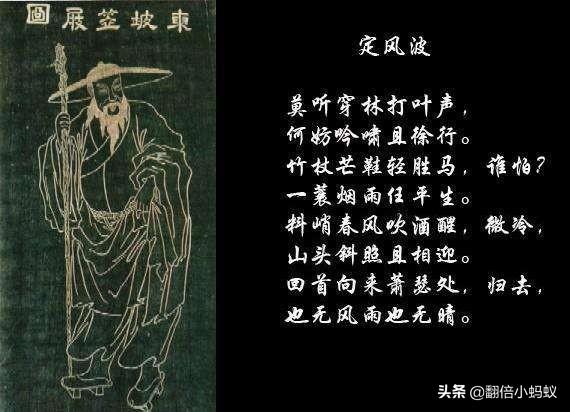 東坡笠屐圖
定风波
莫听穿林打叶声，
何妨吟啸且徐行。
竹杖芒鞋轻胜马，谁怕？
一蓑烟雨任平生。
料峭春风吹酒醒，微冷，
山头斜照且相迎。
回首向来萧瑟处，归去，
也无风雨也无晴。
头条 @翻倍小蚂蚁